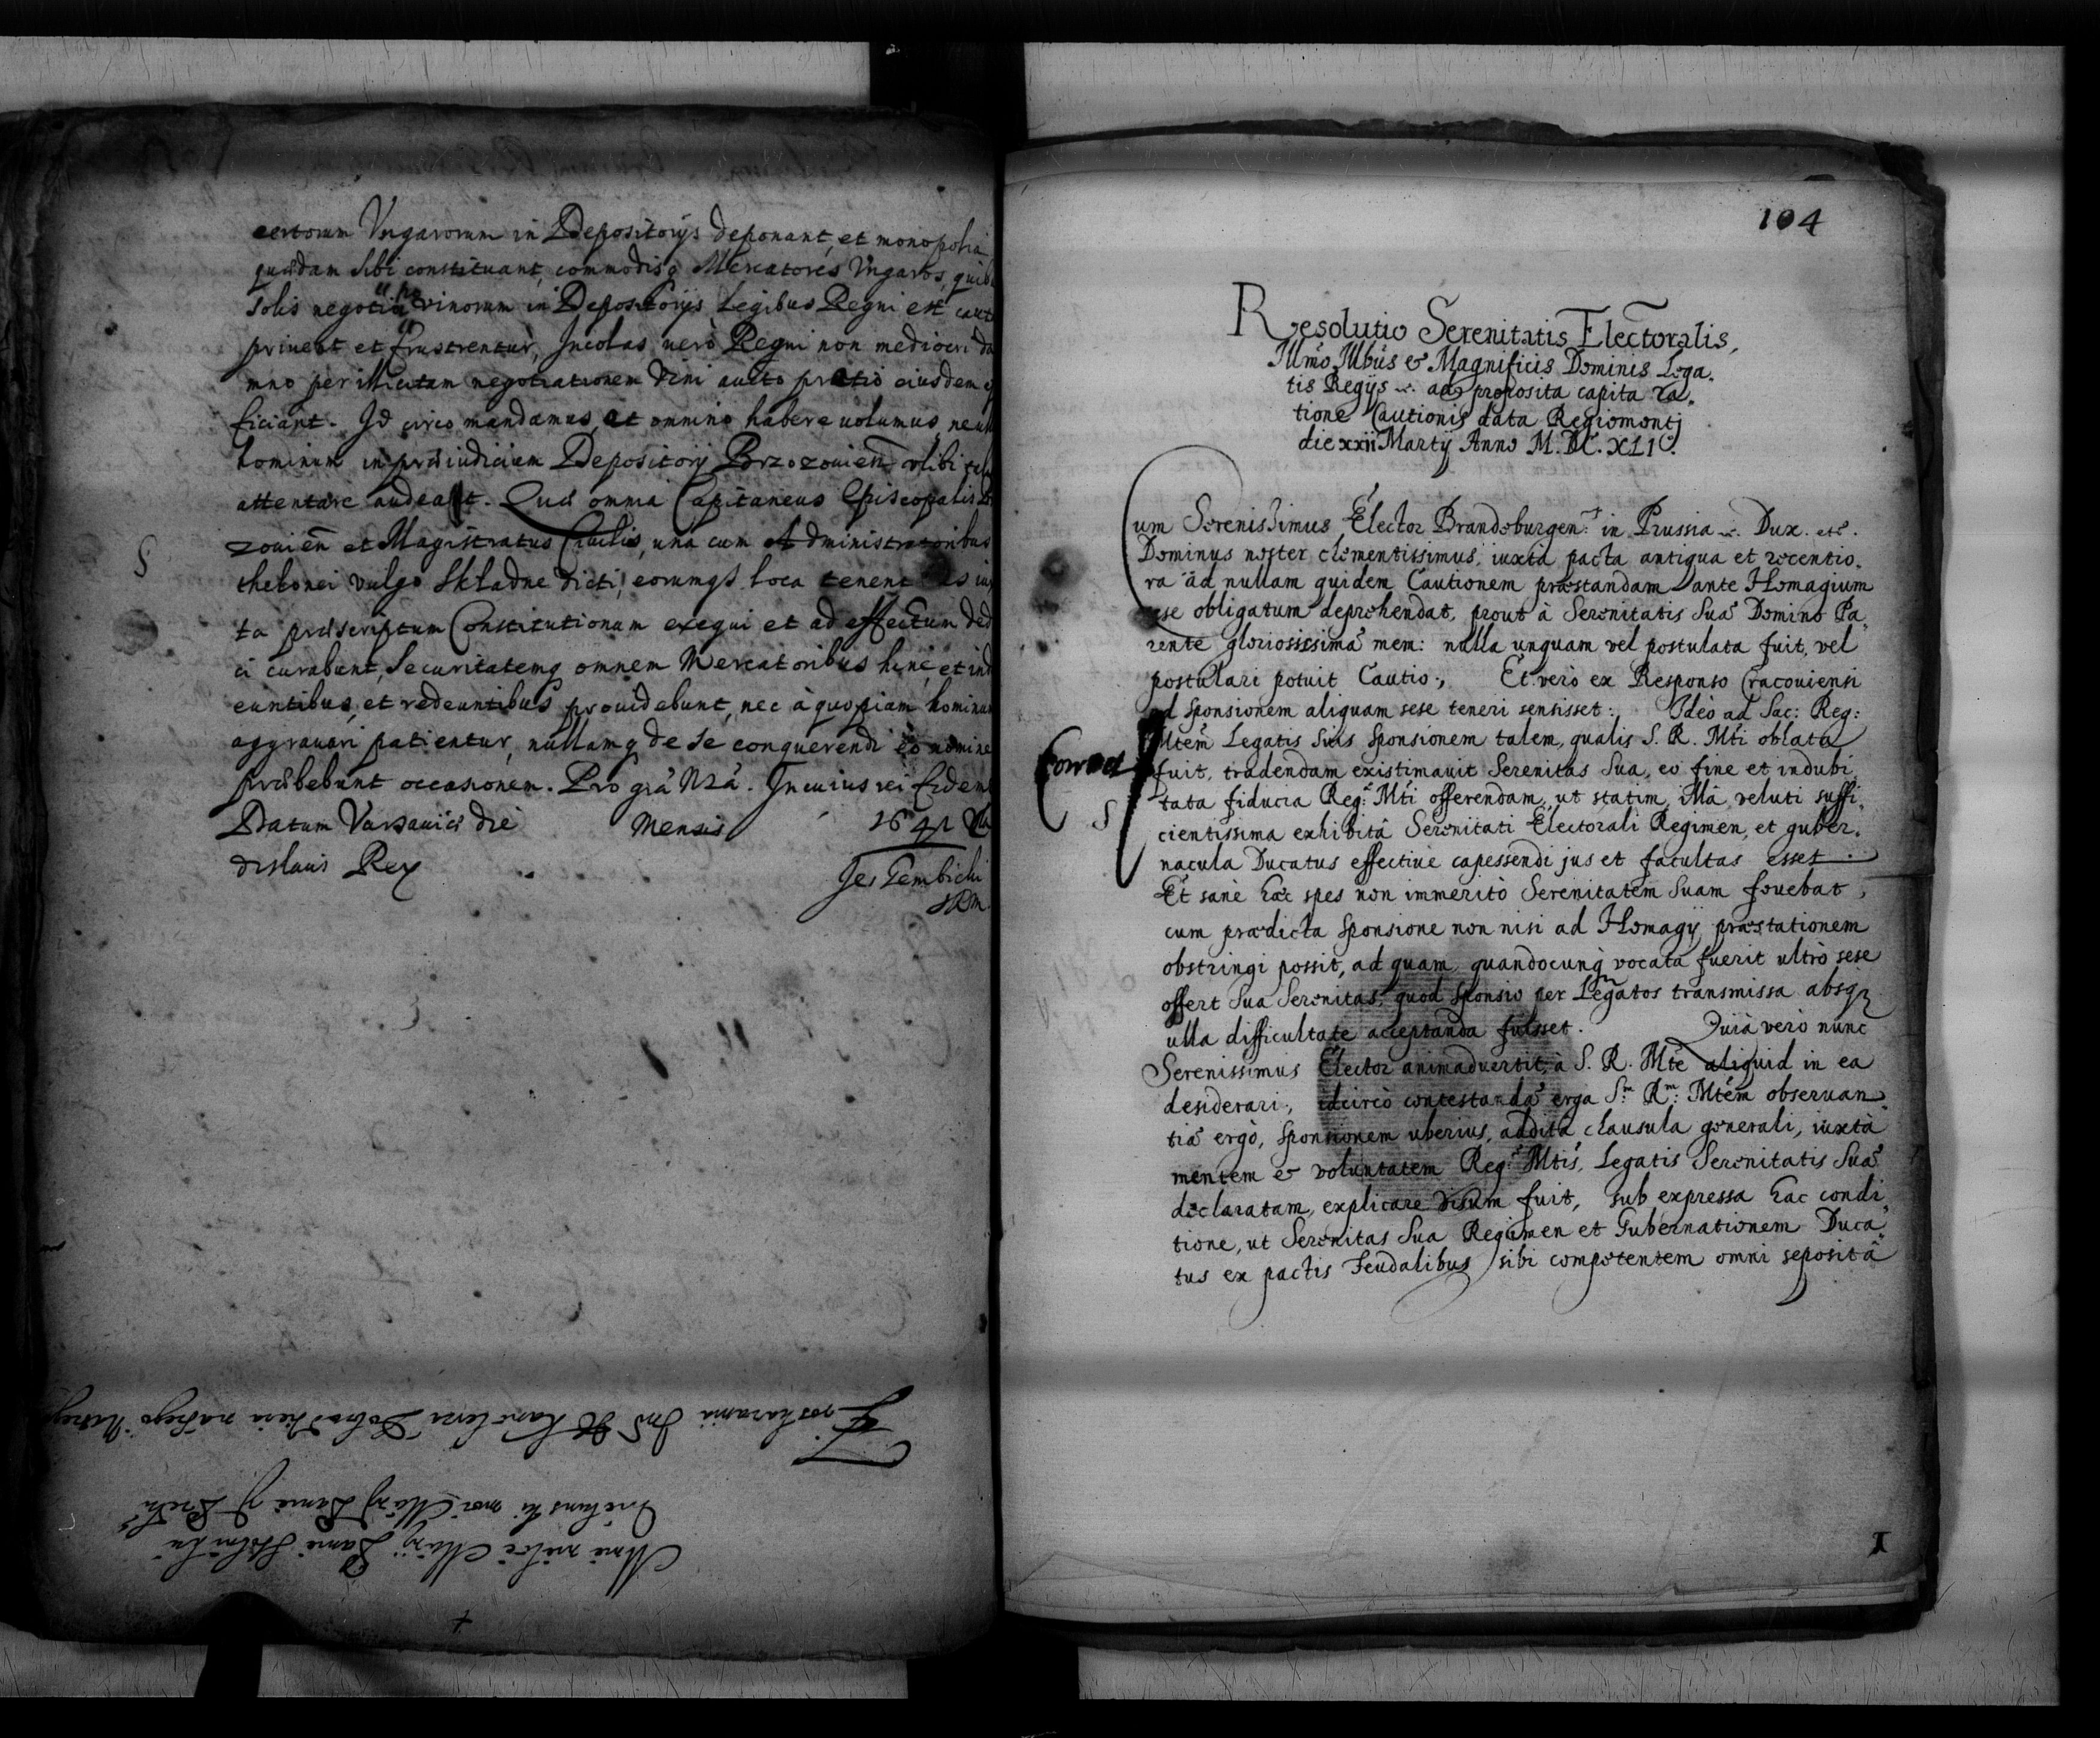 certorum Vngarorum in Depositorijs deponant, et monopolia
quædam sibi constituant, commodisq Mercatores Vngaros, quib
solis negotia vinorum in Depositorijs Legibus Regni est caut
privent et frustrentur, Incolas verò Regni non mediocri da
mno per illicitam negotiationem vini aucto pretio eiusdem
ficiant. Id circo mandamus, et omnino habere volumus, ne
hominum in præiudicium Depositorij Brzozouien̄ vlibi
attentare audeant. Quæ omnia Capitaneus Episcopalis
zouien̄ et Magistratus Ciuilis, una cum Administratoribus
thelonei vulgo Składne dicti, eorumq loca tenent es iux
ta præscriptum Constitutionum exequi et ad effectum ded
ci curabunt, Securitatemq omnem Mercatoribus hinc, et ind
euntibus, et redeuntibus prouidebunt, nec à quopiam hominum
aggrauari patientur, nullamq de se conquerendi eo nomine
præbebunt occasionem. Pro grã Nrã. In cuius rei fidem
Datum Varsauiæ die Mensis 1641 Vla
dislaus Rex
S
104
Resolutio Serenitatis Electoralis,
Illmo Illbus & Magnificis Dominis Lega.
tis Regijs ad proposita capita ra.
tione Cautionis data Regiomontj
die xxii Martij Anno M.DC.XLI
Cum Serenissimus Elector Brandeburgen: in Prussia Dux. etc.
Dominus noster clementissimus, iuxta pacta antiqua et recentio.
ra ad nullam quidem Cautionem præstandam ante Homagium
sese obligatum deprehendat, prout à Serenitatis Suæ Domino Pa.
rente gloriosissimæ mem: nulla unquam vel postulata fuit, vel
postulari potuit Cautio; Et verò ex Responso Cracouiensi
ad sponsionem aliquam sese teneri sensisset: Ideo ad Sac: Reg:
Mtem Legatis suis sponsionem talem, qualis S. R. Mti oblata
fuit, tradendam existimauit Serenitas Sua, eo fine et indubi
tata fiducia Reg: Mti offerendam, ut statim, illâ, veluti suffi.
S
cientissima exhibitâ Serenitati Electorali Regimen, et guber.
nacula Ducatus effectiue capessendi jus et facultas esset.
Et sanè hæc spes non immeritò Serenitatem Suam fouebat,
cum prædicta sponsione non nisi ad Homagij præstationem
obstringi possit, ad quam, quandocunq vocata fuerit ultrò sese
offert Sua Serenitas, quod sponsio per Legatos transmissa absq
ulla difficultate acceptanda fuisset. Quia verò nunc
Serenissimus Elector animaduertit, à S. R. Mte aliquid in ea
desiderari; idcircò contestandæ erga Sm: Rm: Mtem obseruan
tiæ ergò, sponsionem uberius, additâ clausula generali, iuxtà
mentem & voluntatem Reg: Mtis, Legatis Serenitatis Suæ
declaratam, explicare visum fuit, sub expressa hac condi
tione, ut Serenitas Sua Regimen et Gubernationem Duca
tus ex pactis Feudalibus sibi competentem omni sepositâ
I